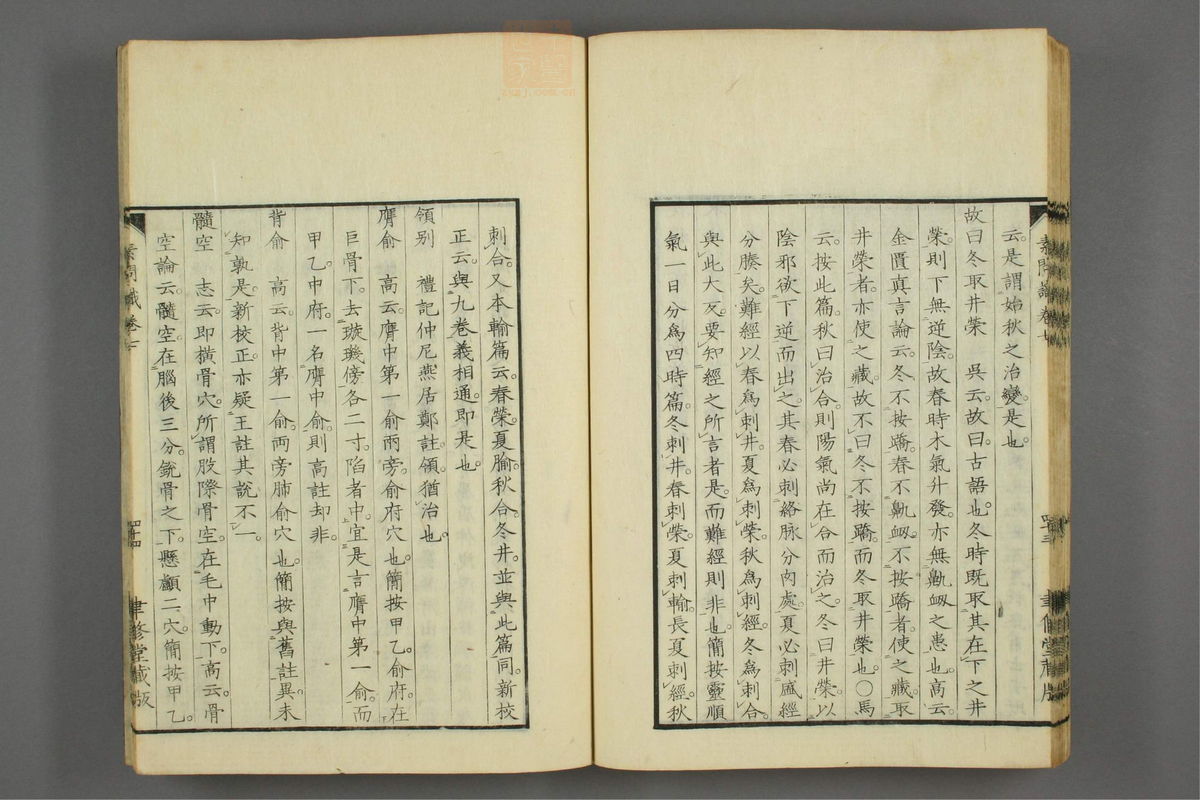 云是謂始秋之治變是也
故曰冬取井榮　吳云故曰古語也冬時既取其在下之井
榮則下無逆陰故春時木氣升發亦無鼽衂之患也高云
金匱真言論云冬不按蹻春不鼽衂不按蹻者使之藏取
井榮者亦使之藏故不曰冬不按蹻而冬取井榮也〇馬
云按此篇秋曰治合則陽氣尚在合而治之冬曰井榮以
陰邪欲下逆而出之其春必刺絡脉分肉處夏必刺盛經
分腠矣難經以春為刺井夏為刺榮秋為刺經冬為刺合
與此大反要知經之所言者是而難經則非也簡按靈順
氣一日分爲四時篇冬刺井春刺榮夏刺輸長夏刺經秋
素問識卷七
四十三
聿修堂藏版
刺合又本輸篇云春榮夏腧秋合冬井並與此篇同新校
正云與九卷義相通即是也
領别　禮記仲尼燕居鄭註領猶治也
膺俞　高云膺中第一俞兩旁俞府穴也簡按甲乙俞府在
巨骨下去璇璣傍各二寸陷者中宜是言膺中第一俞而
甲乙中府一名膺中俞則高註却非
背俞　高云背中第一俞兩旁肺俞穴也簡按與舊註異未
知孰是新校正亦疑王註其說不一
髓空　志云即橫骨穴所謂股際骨空在毛中動下高云骨
空論云髓空在腦後三分銳骨之下懸顱二穴簡按甲乙
素問識卷七
四十四
聿修堂藏版